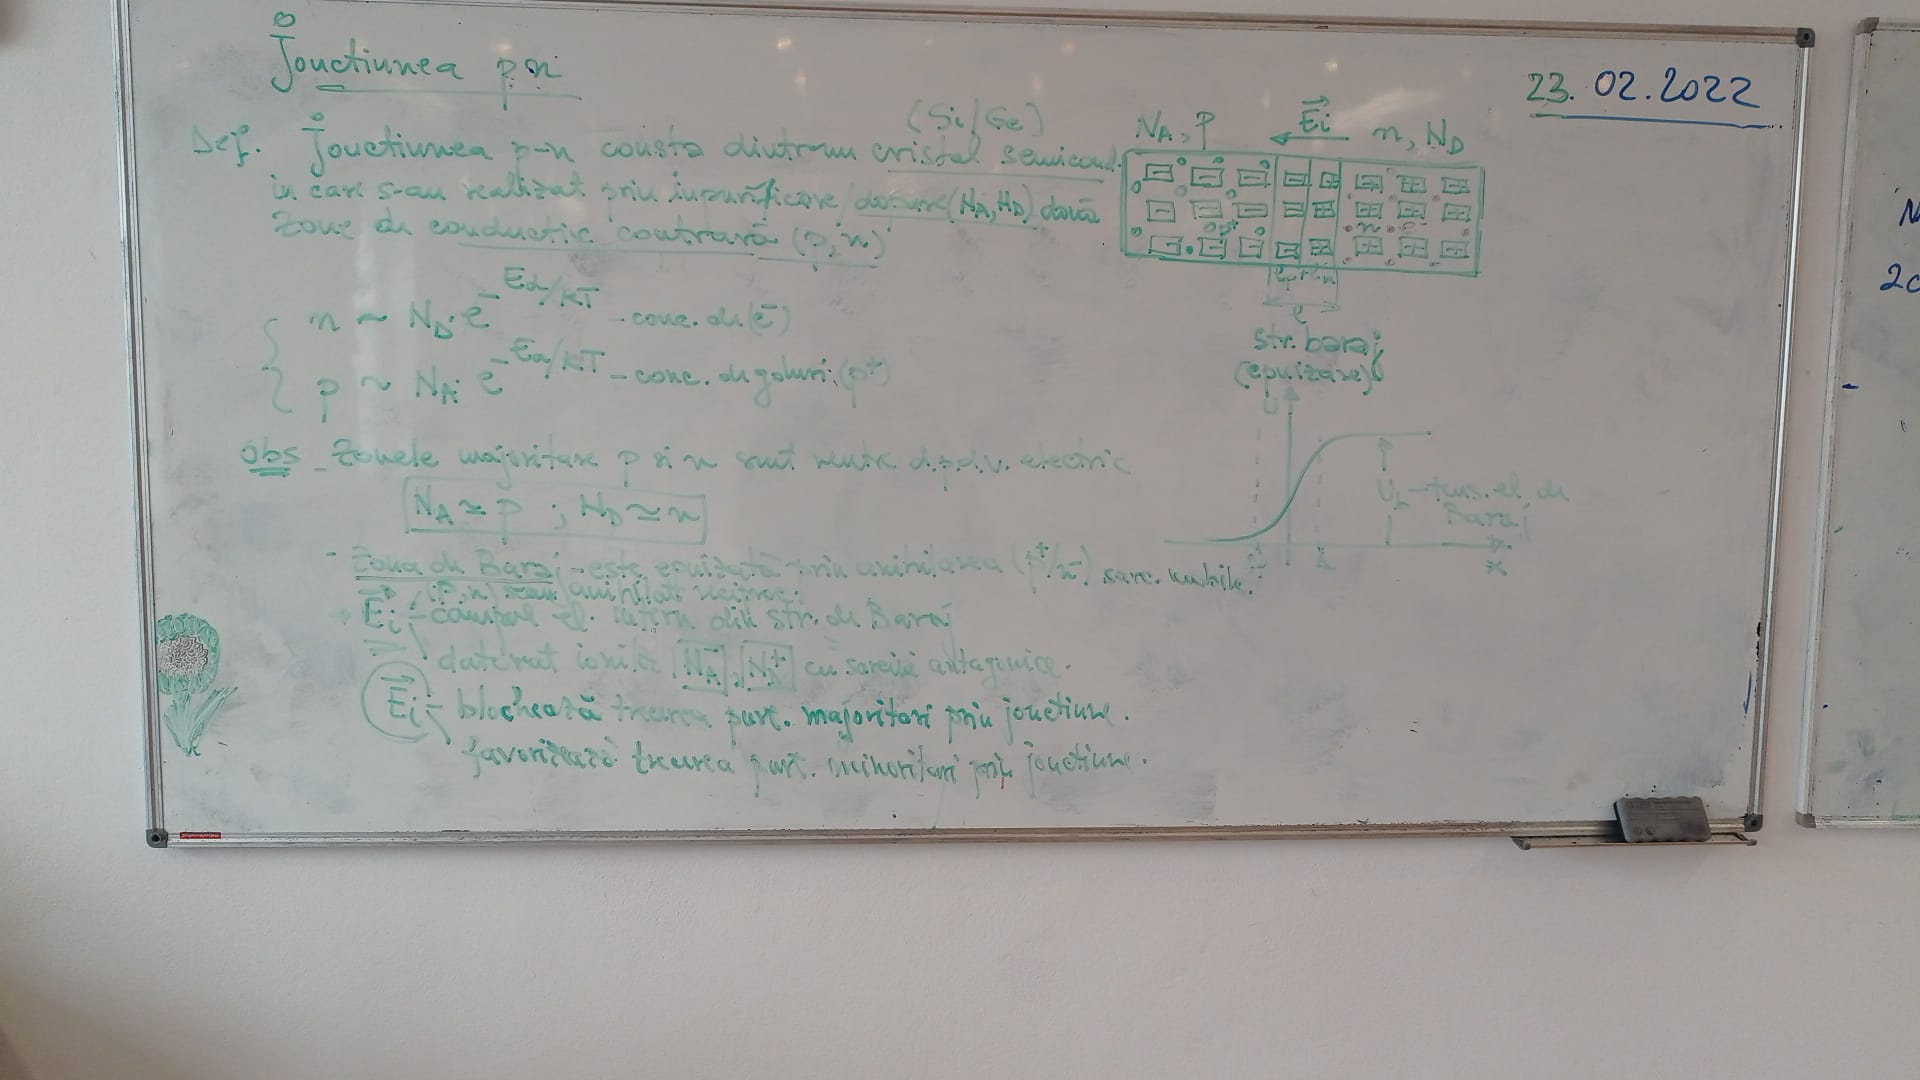 Joncțiunea p-n
23. 02.2022
(Si/Ge)
Def. Joncțiunea p-n constă dintr-un cristal semicond.
în care s-au realizat prin impurificare/dopare (NA, ND) două
zone de conducție contrară (p, n)
NA, p Ei n, ND
n ~ ND · e^-Ed/KT - conc. de (e-)
p ~ NA · e^-Ea/KT - conc. de goluri (p+)
lp ln
l
str. baraj
(epuizare)
U
Obs - Zonele majoritare p și n sunt neutre d.p.d.v. electric
NA ≃ p ; ND ≃ n
UB - tens. el. de
Baraj
x
- Zona de Baraj - este epuizată prin anihilarea (p+/n-) sarc. mobile.
(p, n) s-au anihilat reciproc
Ei - câmpul el. intern din str. de Baraj
datorat ionilor NA-, ND+ cu sarcini antagonice.
Ei - blochează trecerea purt. majoritari prin joncțiune.
favorizează trecerea purt. minoritari prin joncțiune.
2c